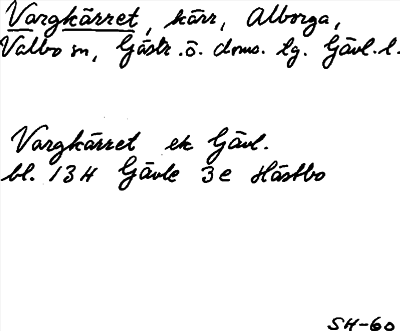 Vargkärret, kärr, Alborga,
Valbo sn, Gästr. ö. doms. tg. Gävl. l.
Vargkärret ek Gävl.
bl. 13H Gävle 3e Hästbo
SH-60